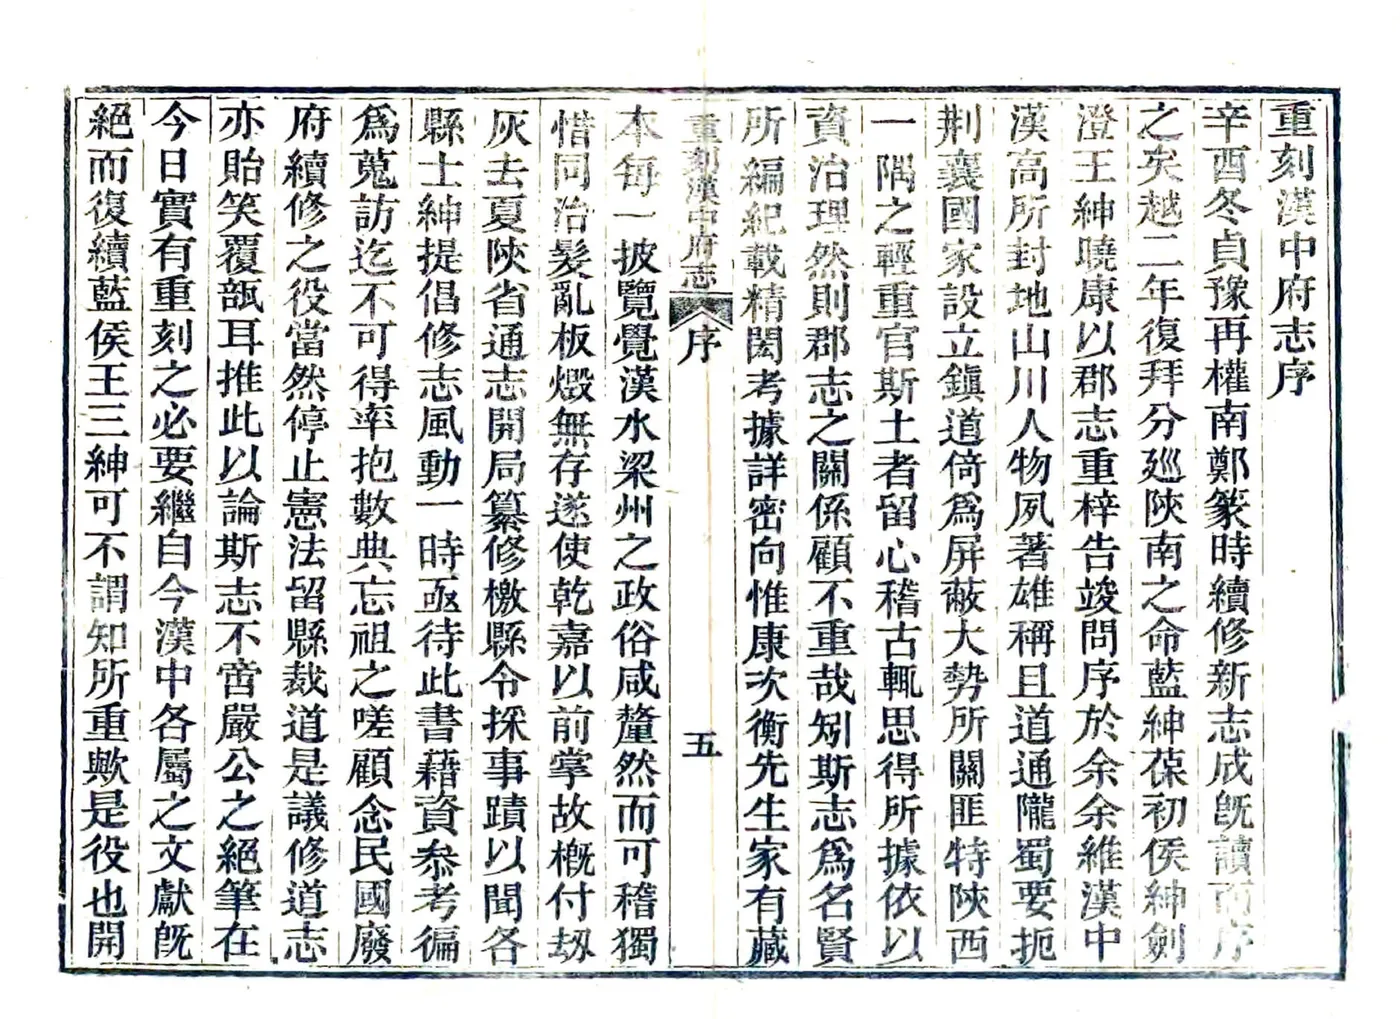 重刻漢中府志序
辛酉冬貞豫再權南鄭篆時續修新志成旣讀而序
之矣越二年復拜分廵陝南之命藍紳葆初侯紳劍
澄王紳曉康以郡志重梓告竣問序於余余維漢中
漢高所封地山川人物夙著雄稱且道通隴蜀要扼
荆襄國家設立鎮道倚爲屏蔽大勢所關匪特陝西
一隅之輕重官斯土者留心稽古輒思得所據依以
資治理然則郡志之關係顧不重哉矧斯志爲名賢
所編紀載精閎考據詳密向惟康次衡先生家有藏
重刻漢中府志 序 五
本每一披覽覺漢水梁州之政俗咸釐然而可稽獨
惜同治髮亂板燬無存遂使乾嘉以前掌故槪付刼
灰去夏陝省通志開局纂修檄縣令採事蹟以聞各
縣士紳提倡修志風動一時亟待此書藉資叅考徧
爲蒐訪迄不可得率抱數典忘祖之嗟顧念民國廢
府續修之役當然停止憲法留縣裁道是議修道志
亦貽笑覆瓿耳推此以論斯志不啻嚴公之絕筆在
今日實有重刻之必要繼自今漢中各屬之文獻旣
絕而復續藍侯王三紳可不謂知所重歟是役也開